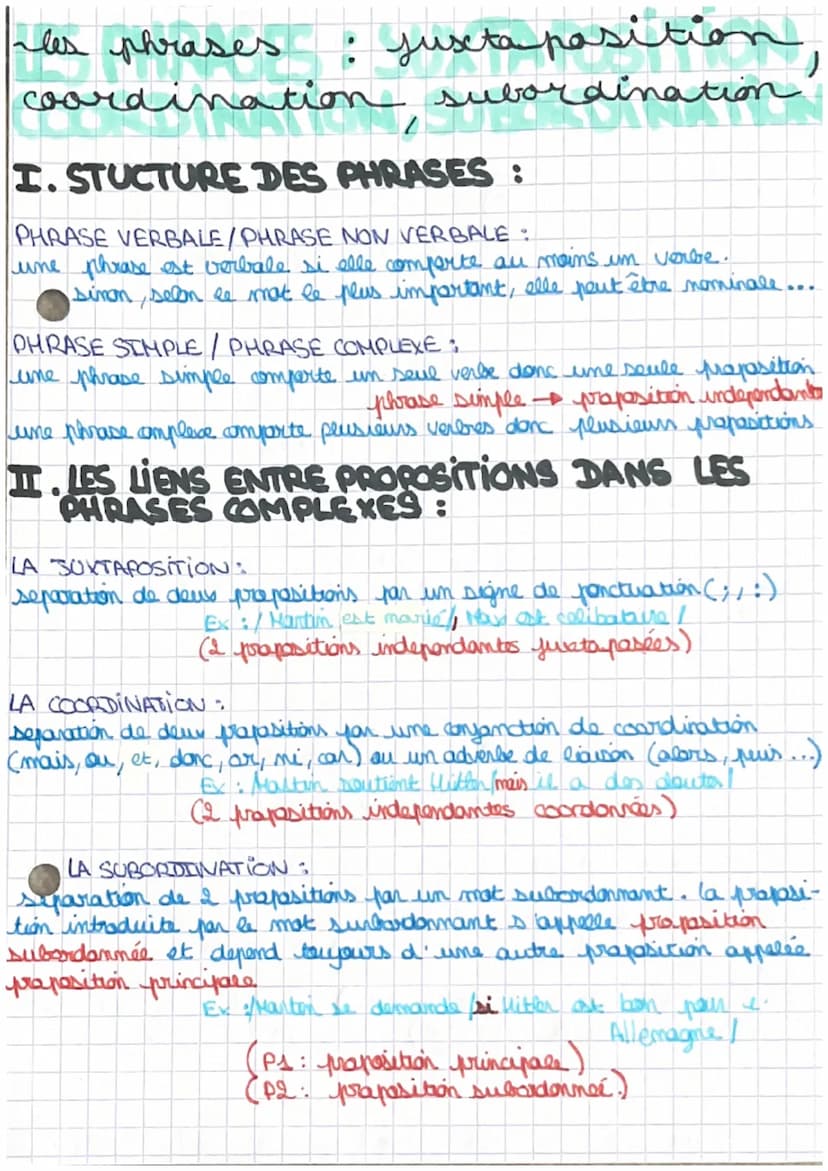 les phrases : juxtaposition,
coordination, subordination
I. STUCTURE DES PHRASES :
PHRASE VERBALE / PHRASE NON VERBALE :
une phrase est verbale si elle comporte au moins un verbe.
sinon, selon le mot le plus important, elle peut être nominale...
PHRASE SIMPLE / PHRASE COMPLEXE :
une phrase simple comporte un seul verbe donc une seule proposition
phrase simple → proposition independante
une phrase complexe comporte plusieurs verbres donc plusieurs propositions
II. LES LIENS ENTRE PROPOSITIONS DANS LES
PHRASES COMPLEXES :
LA JUXTAPOSITION :
separation de deux propositions par un signe de ponctuation (; , :)
Ex : / Martin est marié /, Max est celibataire /
(2 propositions independantes juxtaposées)
LA COORDINATION :
separation de deux propositions par une conjonction de coordination
(mais, ou, et, donc, or, ni, car) ou un adverbe de liaison (alors, puis ...)
Ex : Martin soutient Hitler / mais il a des doutes /
(2 propositions independantes coordonnées)
LA SUBORDINATION :
séparation de 2 propositions par un mot subordonnant. la proposi-
tion introduite par le mot surbordonnant s'appelle proposition
subordonnée et depend toujours d'une autre proposition appelée
proposition principale
Ex : / Martin se demande / si Hitler est bon pour l'
Allemagne /
(P1 : proposition principale)
(P2 : proposition subordonneé.)